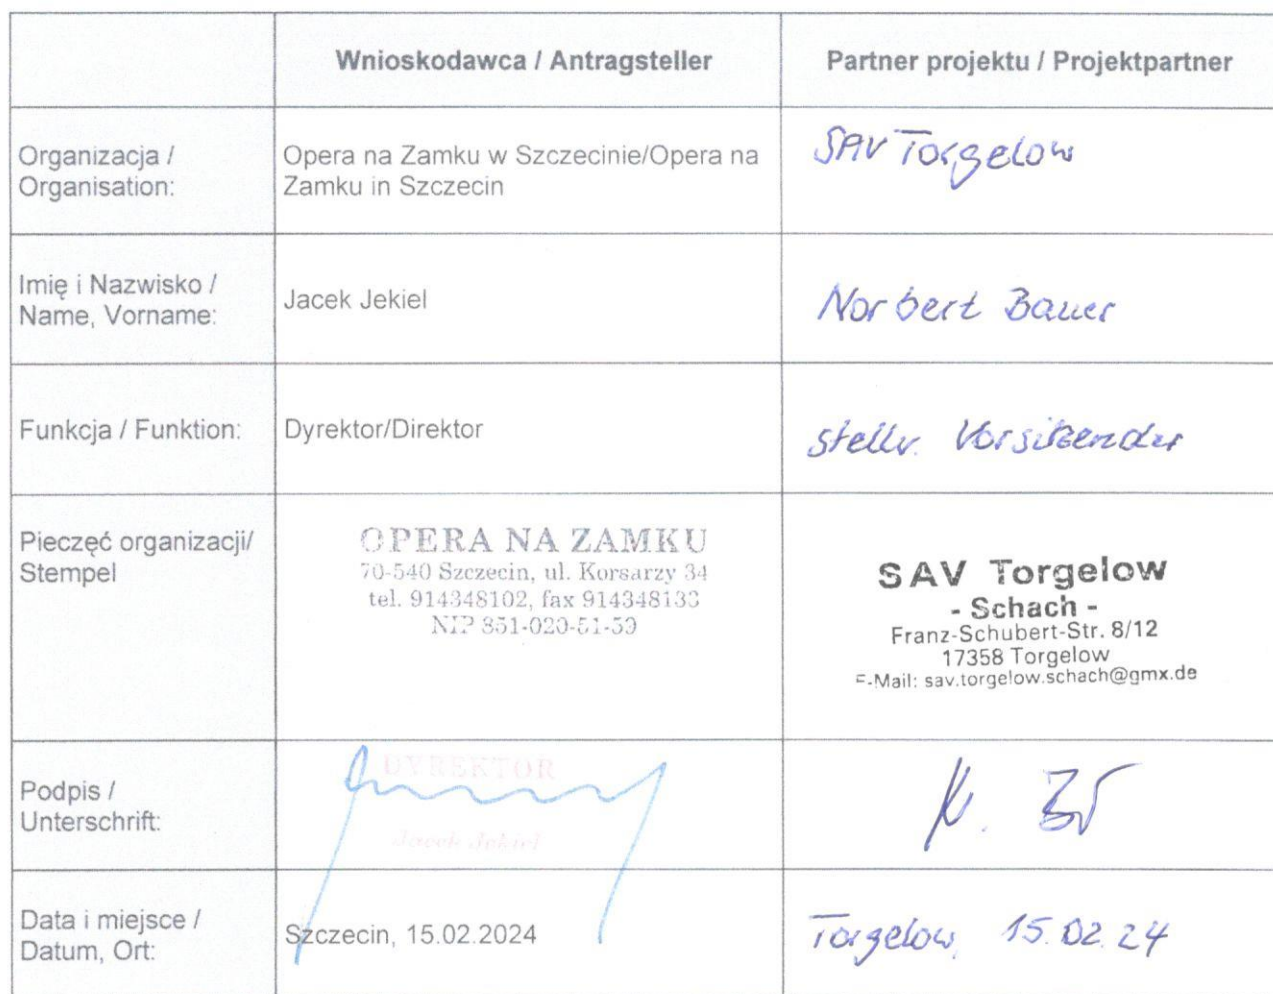 Wnioskodawca / Antragsteller
Partner projektu / Projektpartner
Organizacja /
Organisation:
Opera na Zamku w Szczecinie/Opera na
Zamku in Szczecin
SAV Torgelow
Imię i Nazwisko /
Name, Vorname:
Jacek Jekiel
Norbert Bauer
Funkcja / Funktion:
Dyrektor/Direktor
stellv. Vorsitzender
Pieczęć organizacji/
Stempel
OPERA NA ZAMKU
70-540 Szczecin, ul. Korsarzy 34
tel. 914348102, fax 914348133
NIP 851-020-51-59
SAV Torgelow
- Schach -
Franz-Schubert-Str. 8/12
17358 Torgelow
E-Mail: sav.torgelow.schach@gmx.de
Podpis /
Unterschrift:
DYREKTOR
Jacek Jekiel
Data i miejsce /
Datum, Ort:
Szczecin, 15.02.2024
Torgelow, 15.02.24